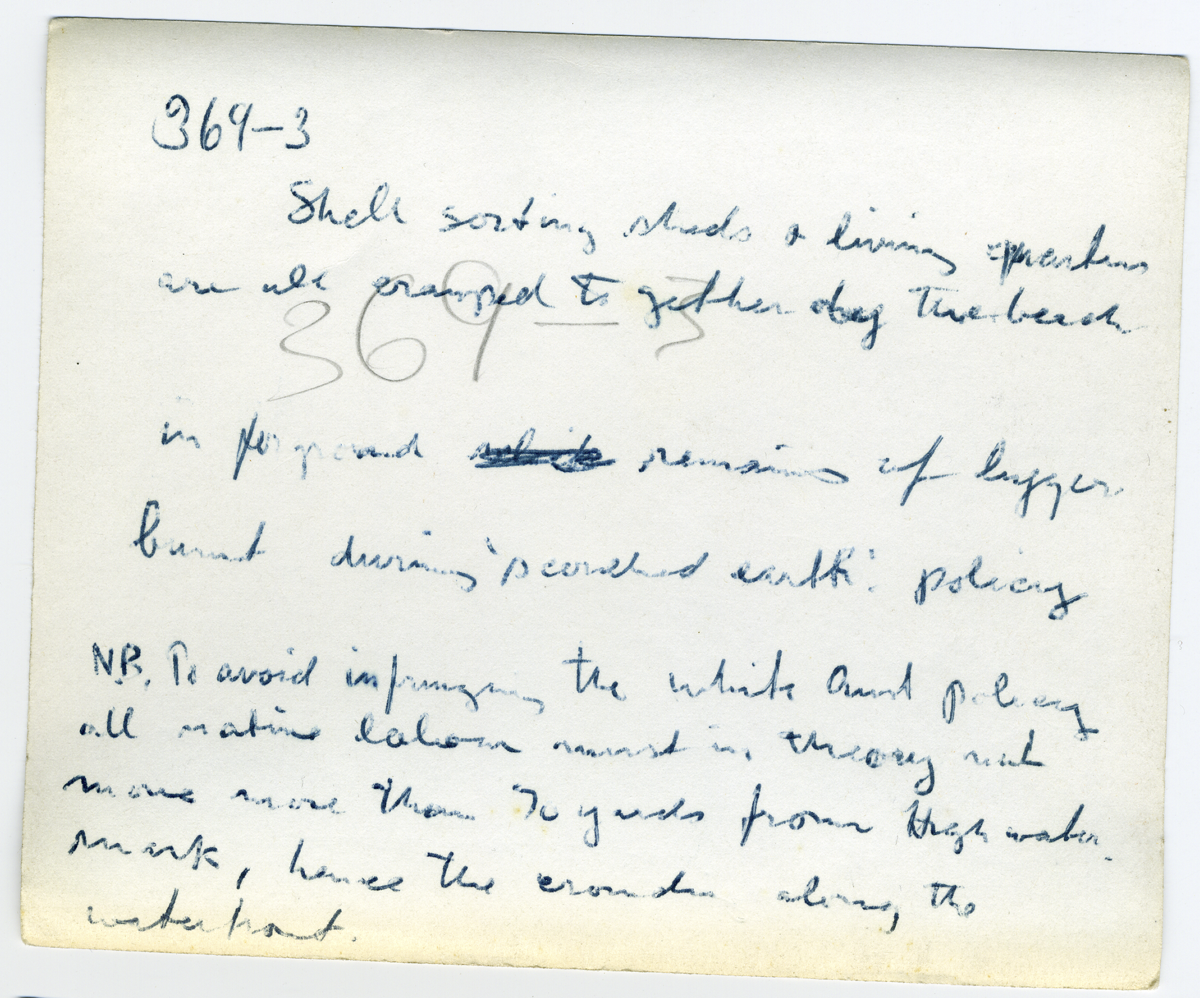 369-3
Shell sorting sheds & living quarters
are all cramped together along the beach
369-3
in forground remains of lugger
burnt during 'scorched earth'. policy
NB. To avoid infringing the white Aust policy
all native labour must in theory not
move more than 70 yards from High water
mark, hence the crowding along the
waterfront.